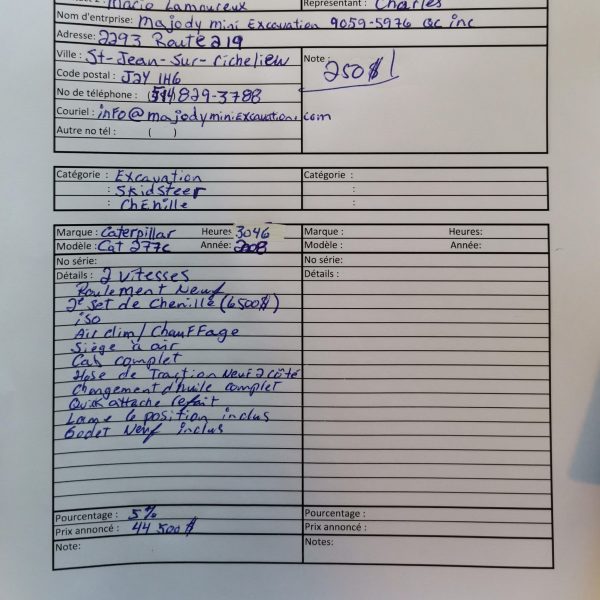 2: Mario Lamoureux Représentant : Charles
Nom d'entrprise: Majody mini Excavation 9059-5976 Qc inc
Adresse: 2293 Route 219
Ville : St-Jean-Sur-Richelieu Note :
250$!
Code postal : J2Y 1H6
No de téléphone : (514) 829-3788
Courriel : info@majodyminiexcavation.com
Autre no tél : ( )
Catégorie : Excavation Catégorie :
: Skidsteer :
: Chenille :
Marque : Caterpillar Heures: 3046 Marque : Heures:
Modèle : Cat 277c Année: 2008 Modèle : Année:
No série: No série:
Détails : 2 vitesses Détails :
Roulement Neuf
2e set de chenille (6500$)
iso
Air clim/Chauffage
Siège à air
Cab complet
Hose de Traction Neuf 2 côté
Changement d'huile complet
Quick attache refait
Lame 6 position inclus
Godet Neuf inclus
Pourcentage : 5% Pourcentage :
Prix annoncé : 44 500$ Prix annoncé :
Note: Notes: